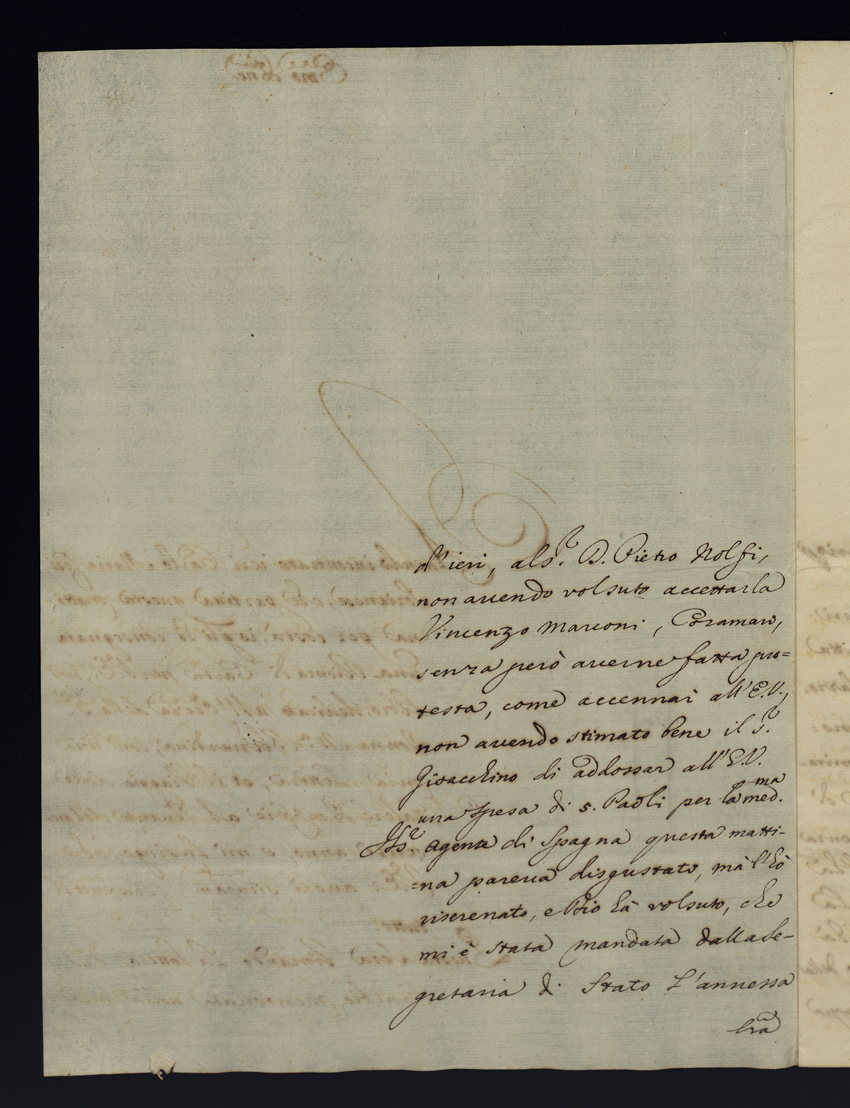 d'ieri, al S.r D. Pietro Nolfi,
non avendo volsuto accettarla
Vincenzo Marconi,
senza però averne fatta pro=
testa, come accennai all'E.V.,
non avendo stimato bene il S.r
Gioacchino di addossar all'E.V.
una spesa di 5. Paoli per la med.ma
Il S.r Agente di Spagna questa matti-
=na pareva disgustato, mà l'hò
riserenato, e Dio hà volsuto, che
mi è stata mandata dalla Se-
gretaria di Stato l'annessa